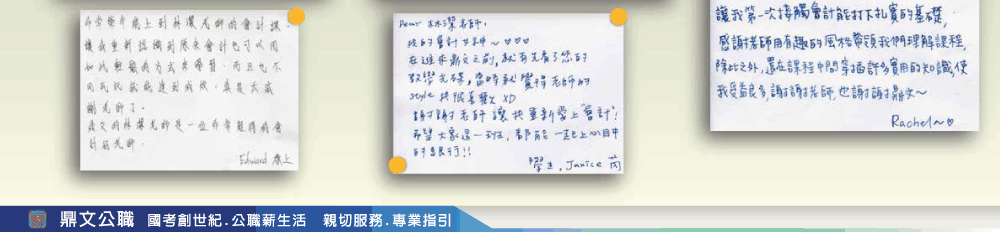 非常榮幸能上到林澤老師的會計課,
讓我重新認識到原來會計也可以用
如此輕鬆的方式來學習,而且也不
用死記就能達到成效,真是太感
謝老師了。
鼎文的林澤老師是一位非常超棒的會
計的老師.
Edward 敬上
Dear 林澤老師,
我的會計女神~♡♡♡
在進來鼎文之前,就有先看了您的
教學光碟,當時就覺得老師的
style 我很喜歡 XD
謝謝老師讓我重新愛上"會計"!
希望大家這一班,都能一起上心目中
的銀行!!
學生, Janice 芮
讓我第一次接觸會計能打下扎實的基礎,
感謝老師用有趣的風格帶領我們理解課程,
除此之外,還在課程中間穿插許多實用的知識,使
我受益良多,謝謝老師,也謝謝鼎文~
Rachel~♡
鼎文公職 國考創世紀.公職薪生活 親切服務.專業指引